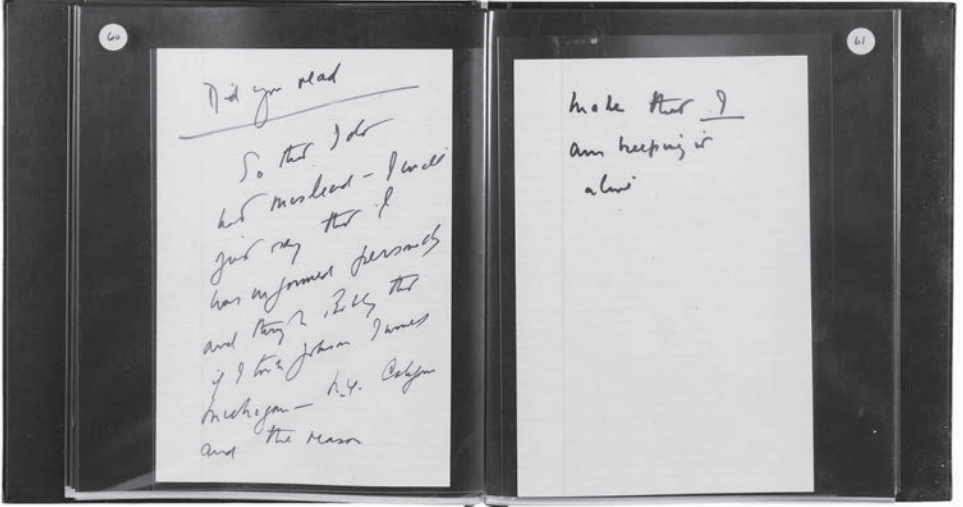 60
Did you read
So that I do
not mislead – I will
just say that I
was informed personally
and through Bobby that
if I took Johnson I would
Michigan – N.Y. Calif
and the reason
61
make that I
am keeping it
alive